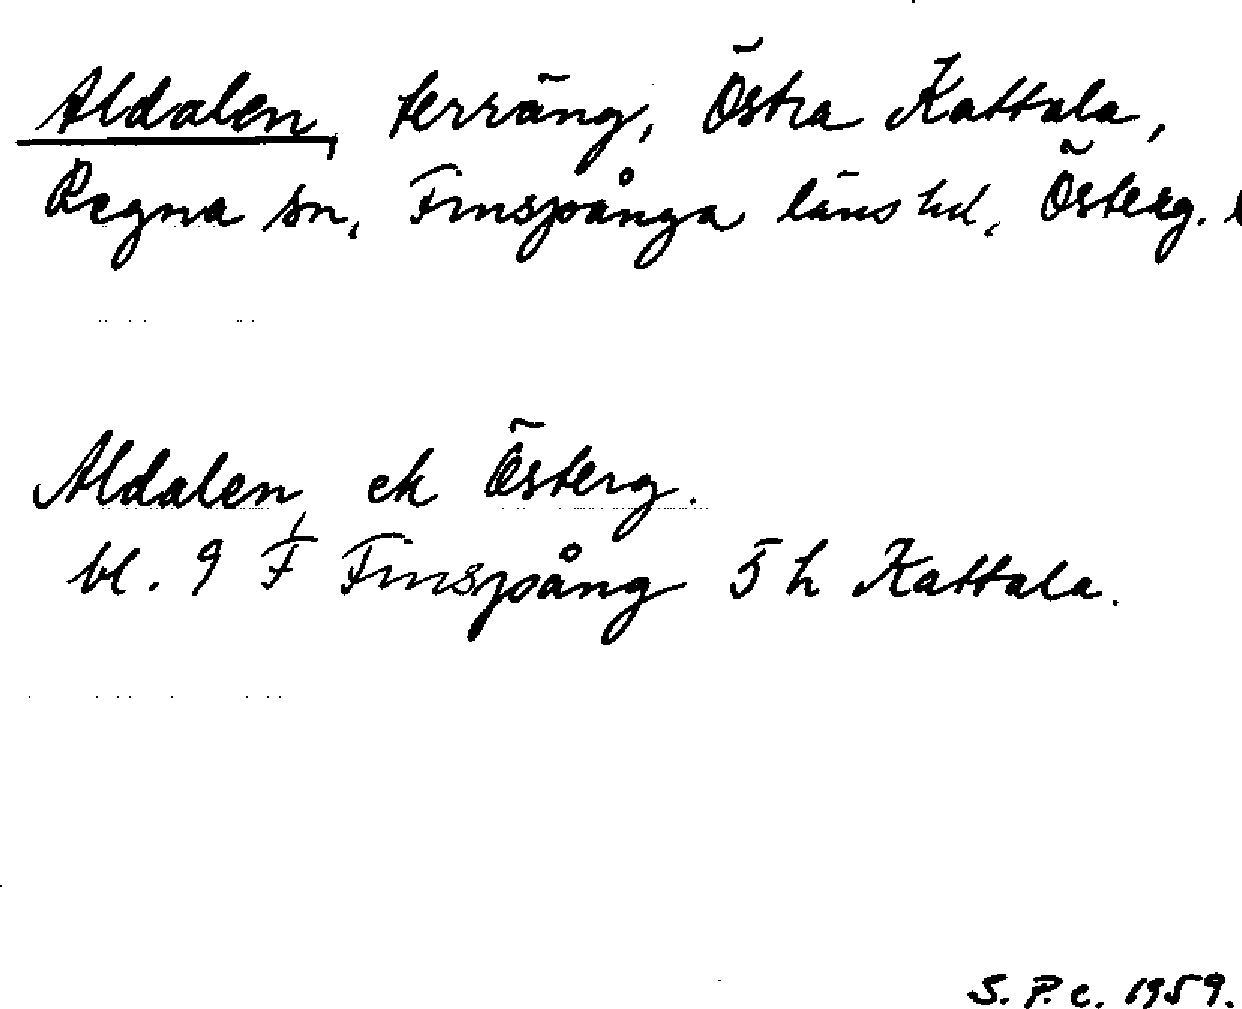 Aldalen, terräng, Östra Kattala,
Regna sn, Finspånga läns hd, Österg. l
Aldalen, ek Österg.
bl. 9 F Finspång 5 h Kattala.
S. P. c. 1959.